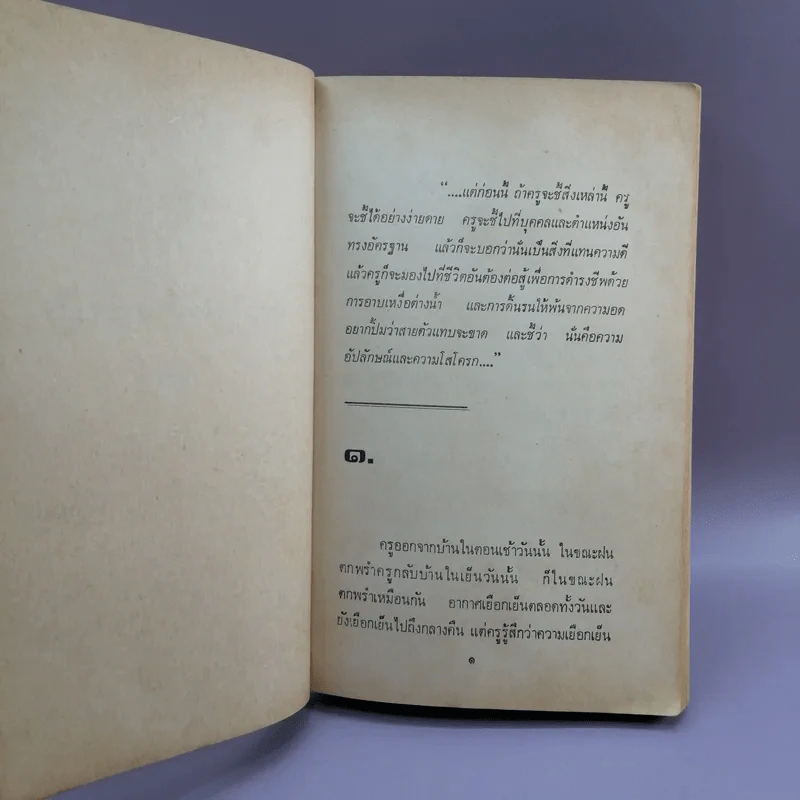 “....แต่ก่อนนี้ ถ้าครูจะชี้สิ่งเหล่านี้ ครู
จะชี้ได้อย่างง่ายดาย ครูจะชี้ไปที่บุคคลและตำแหน่งอัน
ทรงอัครฐาน แล้วก็จะบอกว่านั่นเป็นสิ่งที่แทนความดี
แล้วครูก็จะมองไปที่ชีวิตอันต้องต่อสู้เพื่อการดำรงชีพด้วย
การอาบเหงื่อต่างน้ำ และการดิ้นรนให้พ้นจากความอด
อยากปิ้มว่าสายตัวแทบจะขาด และชี้ว่า นั่นคือความ
อัปลักษณ์และความโสโครก....”
๑.
ครูออกจากบ้านในตอนเช้าวันนั้น ในขณะฝน
ตกพรำครูกลับบ้านในเย็นวันนั้น ก็ในขณะฝน
ตกพรำเหมือนกัน อากาศเยือกเย็นตลอดทั้งวันและ
ยังเยือกเย็นไปถึงกลางคืน แต่ครูรู้สึกว่าความเยือกเย็น
๑